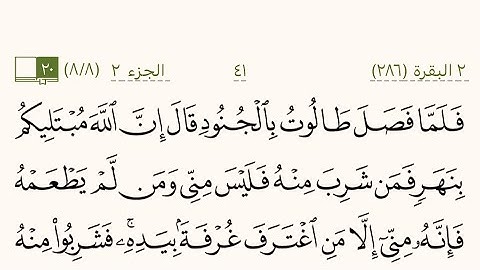 ٢ البقرة (٢٨٦) ٤١ الجزء ٢ (٨/٨) ٢٠
فَلَمَّا فَصَلَ طَالُوتُ بِٱلۡجُنُودِ قَالَ إِنَّ ٱللَّهَ مُبۡتَلِيكُم
بِنَهَرٖ فَمَن شَرِبَ مِنۡهُ فَلَيۡسَ مِنِّي وَمَن لَّمۡ يَطۡعَمۡهُ
فَإِنَّهُۥ مِنِّيٓ إِلَّا مَنِ ٱغۡتَرَفَ غُرۡفَةَۢ بِيَدِهِۦۚ فَشَرِبُواْ مِنۡهُ